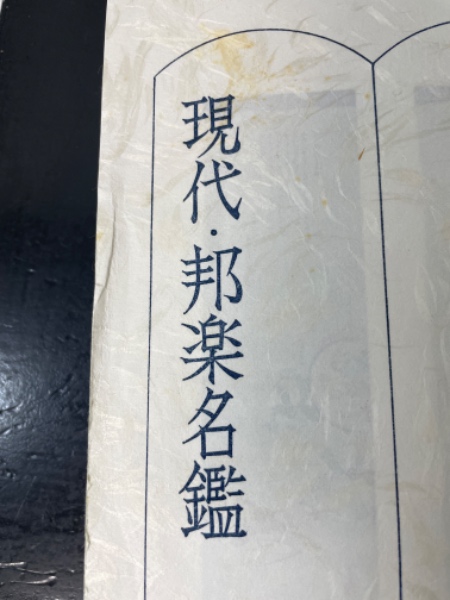 現代・邦楽名鑑